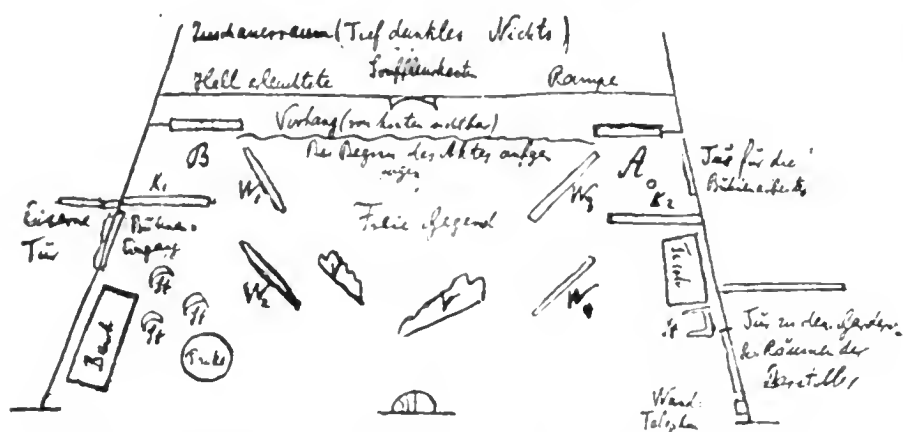 Zuschauerraum (Tief dunkles Nichts)
Souffleurkasten
Hell erleuchtete Rampe
Vorhang (von hinten sichtbar)
Bei Beginn des Aktes aufgezogen
B
A
K1
K2
W1
W3
Tür für die Bühnenarbeiter
Eiserne Tür
Bühnen-Eingang
Freie Gegend
W2
V
W4
Tisch
St
St
St
St
Bank
Tür zu den Garderobe-Räumen der Darsteller
Wand-
Telephon